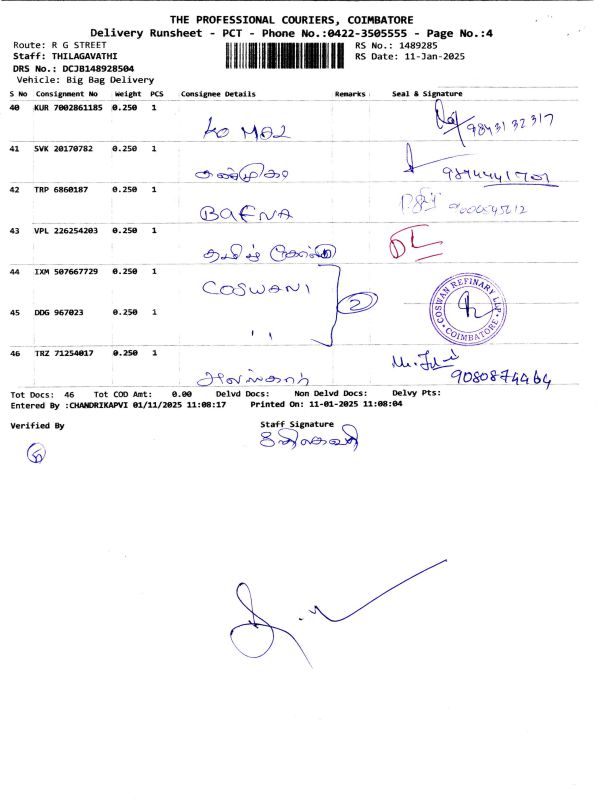 THE PROFESSIONAL COURIERS, COIMBATORE
Delivery Runsheet - PCT - Phone No.:0422-3505555 - Page No.:4
Route: R G STREET
RS No.: 1489285
Staff: THILAGAVATHI
RS Date: 11-Jan-2025
DRS No.: DCJB148928504
Vehicle: Big Bag Delivery
S No Consignment No Weight PCS Consignee Details Remarks Seal & Signature
40 KUR 7002861185 0.250 1
9843132317
KOMAL
41 SVK 20170782 0.250 1
9894441701
42 TRP 6860187 0.250 1
BAFNA
43 VPL 226254203 0.250 1
DL
தமிழ்
44 IXM 507667729 0.250 1
COSWANI
2
COSWAN REFINARY LLP
COIMBATORE
45 DDG 967023 0.250 1
''
46 TRZ 71254017 0.250 1
அலங்கார்
9080874464
Tot Docs: 46 Tot COD Amt: 0.00 Delvd Docs: Non Delvd Docs: Delvy Pts:
Entered By :CHANDRIKAPVI 01/11/2025 11:08:17 Printed On: 11-01-2025 11:08:04
Verified By
Staff Signature
திலகவதி